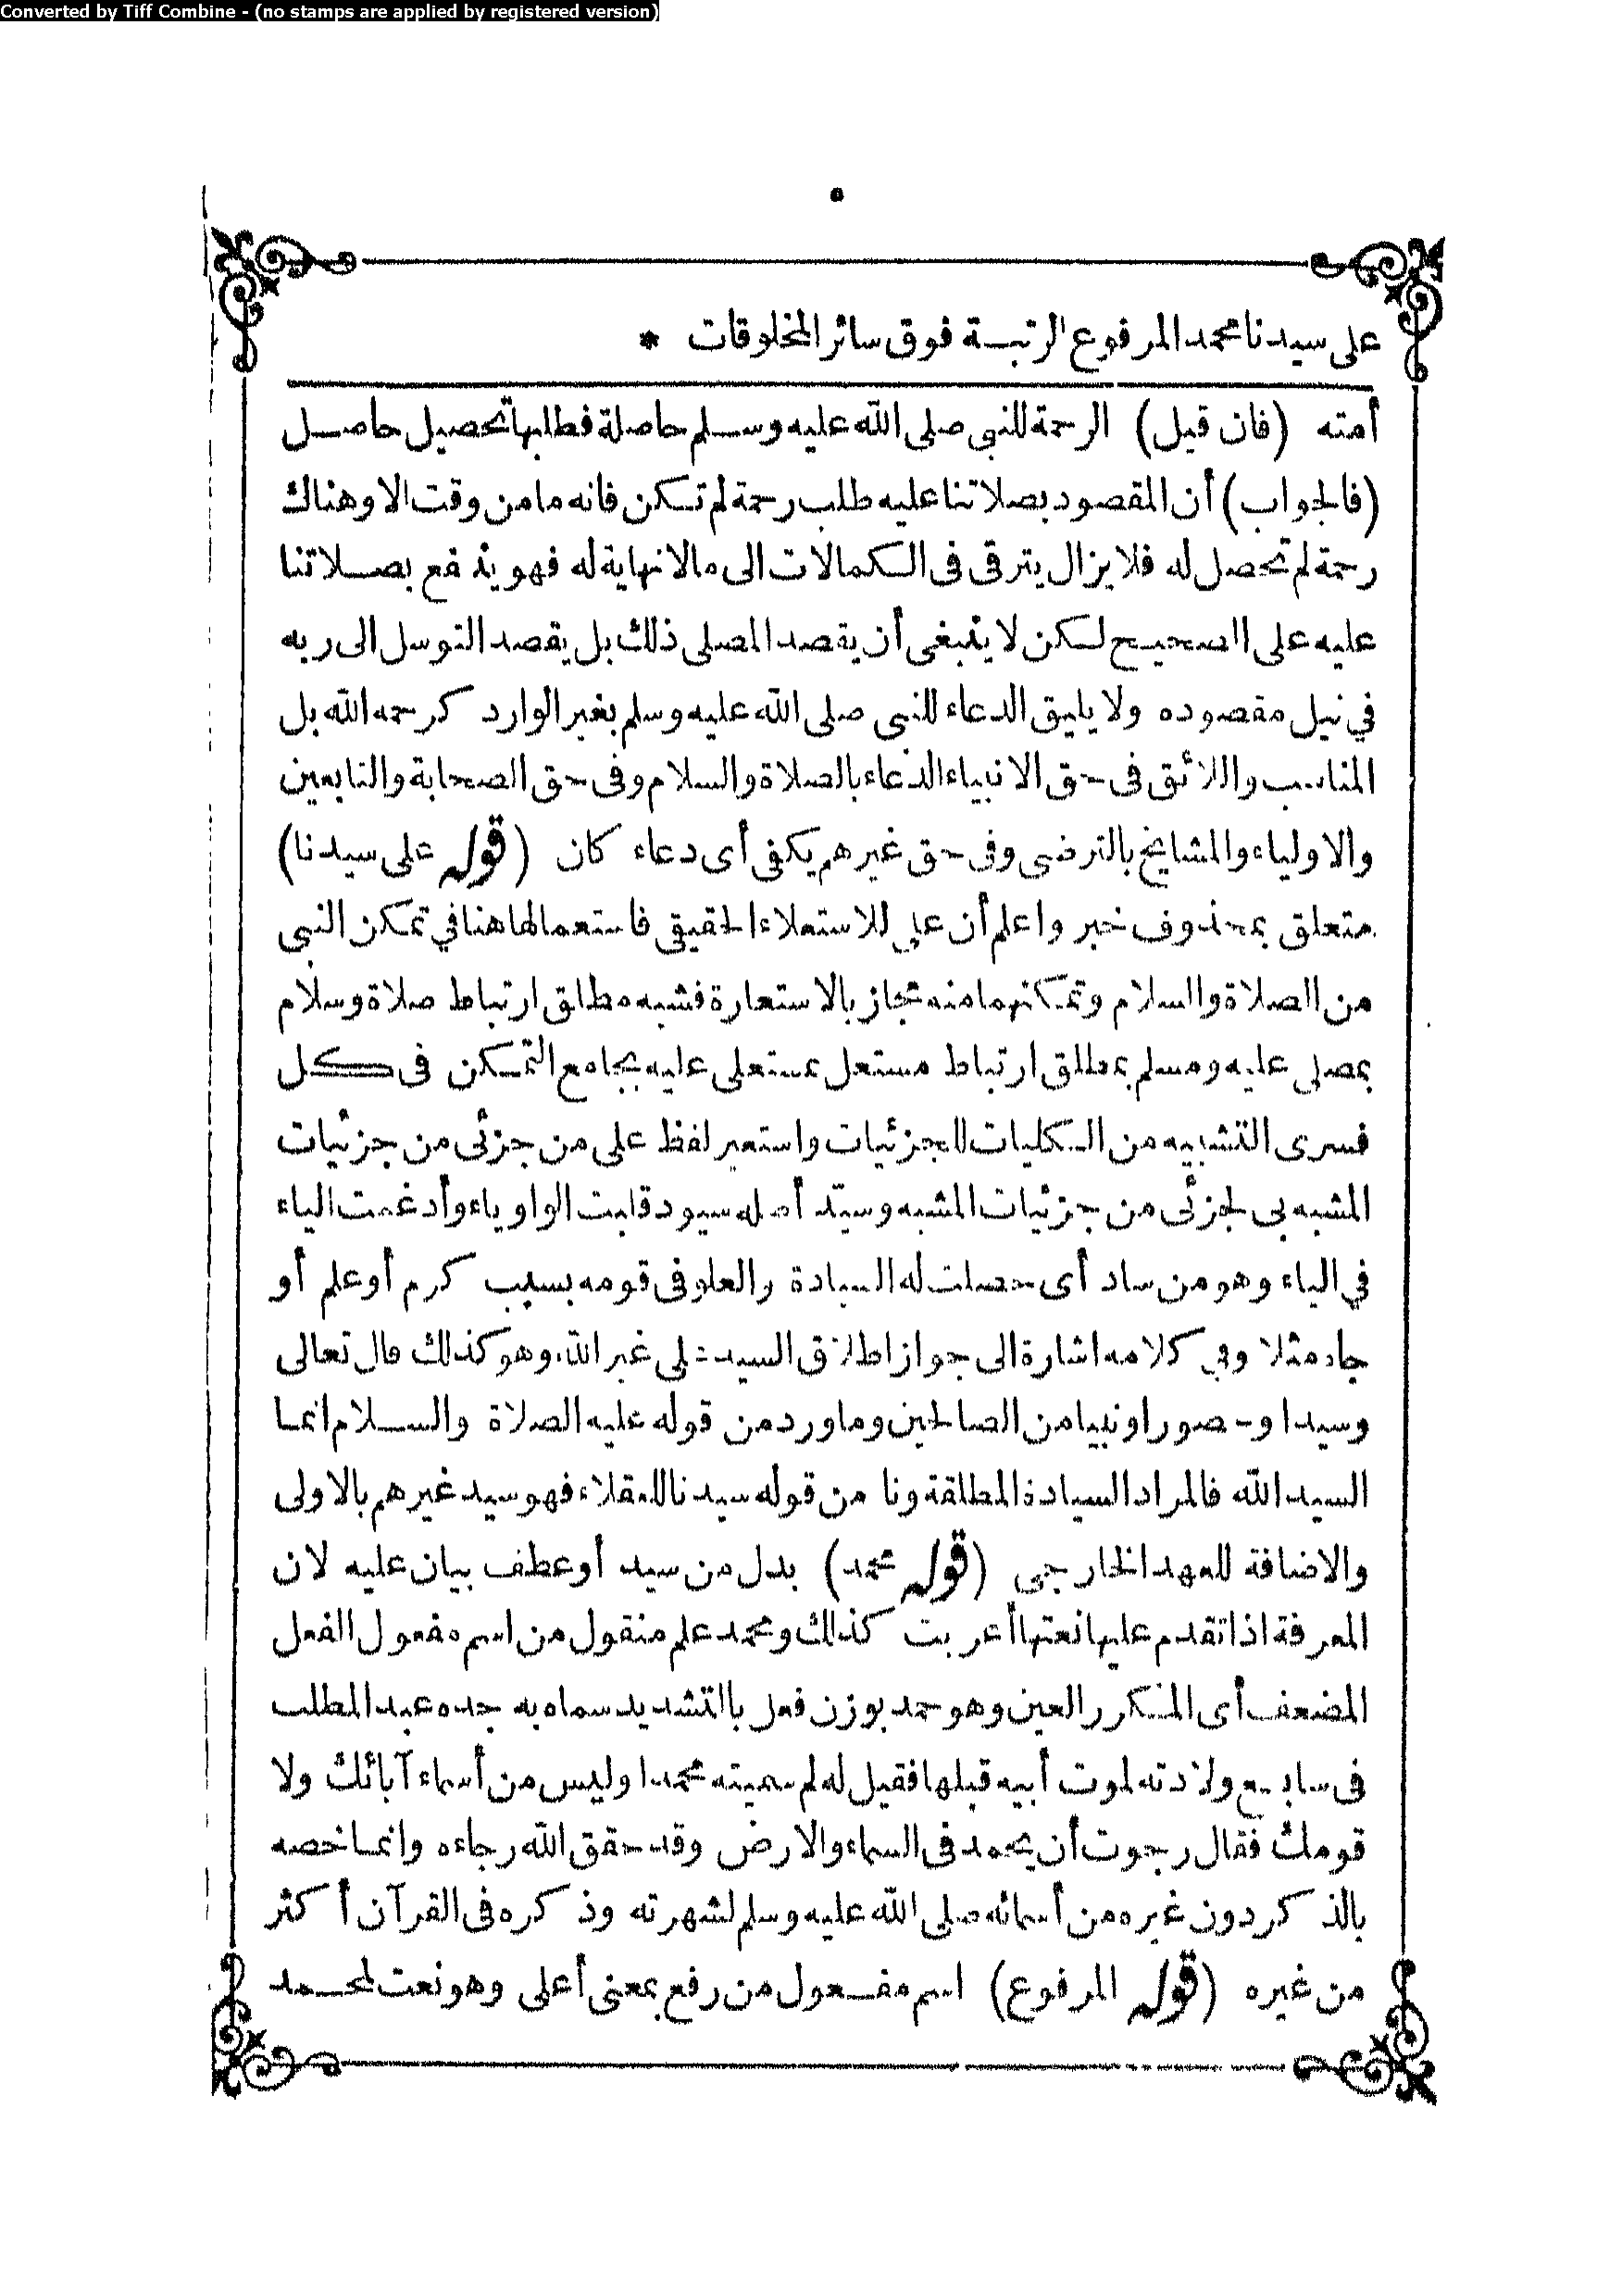 Converted by Tiff Combine - (no stamps are applied by registered version)
٥
على سيدنا محمد المرفوع الرتبة فوق سائر المخلوقات *
أمته (فان قيل) الرحمة للنبي صلى الله عليه وسلم حاصلة فطلبها تحصيل حاصل
(فالجواب) أن المقصود بصلاتنا عليه طلب رحمة لم تكن فانه ما من وقت الا وهناك
رحمة لم تحصل له فلا يزال يترقى فى الكمالات الى ما لا نهاية له فهو ينتفع بصلاتنا
عليه على الصحيح لكن لا ينبغى أن يقصد المصلى ذلك بل يقصد التوسل الى ربه
في نيل مقصوده ولا يليق الدعاء للنبى صلى الله عليه وسلم بغير الوارد كرحمه الله بل
المناسب واللائق فى حق الانبياء الدعاء بالصلاة والسلام وفى حق الصحابة والتابعين
والاولياء والمشايخ بالترضى وفى حق غيرهم يكفى أى دعاء كان (قوله على سيدنا)
متعلق بمحذوف خبر واعلم أن على للاستعلاء الحقيقى فاستعمالها هنا في تمكن النبى
من الصلاة والسلام وتمكنهما منه مجاز بالاستعارة فشبه مطلق ارتباط صلاة وسلام
بمصلى عليه ومسلم بمطلق ارتباط مستعل بمستعلى عليه بجامع التمكن فى كل
فسرى التشبيه من الكليات للجزئيات واستعير لفظ على من جزئى من جزئيات
المشبه بى لجزئى من جزئيات المشبه وسيد أصله سيود قلبت الواو ياء وأدغمت الياء
في الياء وهو من ساد أى حصلت له السيادة والعلو فى قومه بسبب كرم أو علم أو
جاه مثلا وفى كلامه اشارة الى جواز اطلاق السيد على غير الله وهو كذلك قال تعالى
وسيدا وحصورا ونبيا من الصالحين وما ورد من قوله عليه الصلاة والسلام انما
السيد الله فالمراد السيادة المطلقة ونا من قوله سيدنا للعقلاء فهو سيد غيرهم بالاولى
والاضافة للعهد الخارجى (قوله محمد) بدل من سيد أو عطف بيان عليه لان
المعرفة اذا تقدم عليها نعتها أعربت كذلك ومحمد علم منقول من اسم مفعول الفعل
المضعف أى المكرر العين وهو حمد بوزن فعل بالتشديد سماه به جده عبد المطلب
فى سابع ولادته لموت أبيه قبلها فقيل له لم سميته محمدا وليس من أسماء آبائك ولا
قومك فقال رجوت أن يحمد فى السماء والارض وقد حقق الله رجاءه وانما خصه
بالذكر دون غيره من أسمائه صلى الله عليه وسلم لشهرته وذكره فى القرآن أكثر
من غيره (قوله المرفوع) اسم مفعول من رفع بمعنى أعلى وهو نعت لمحمد